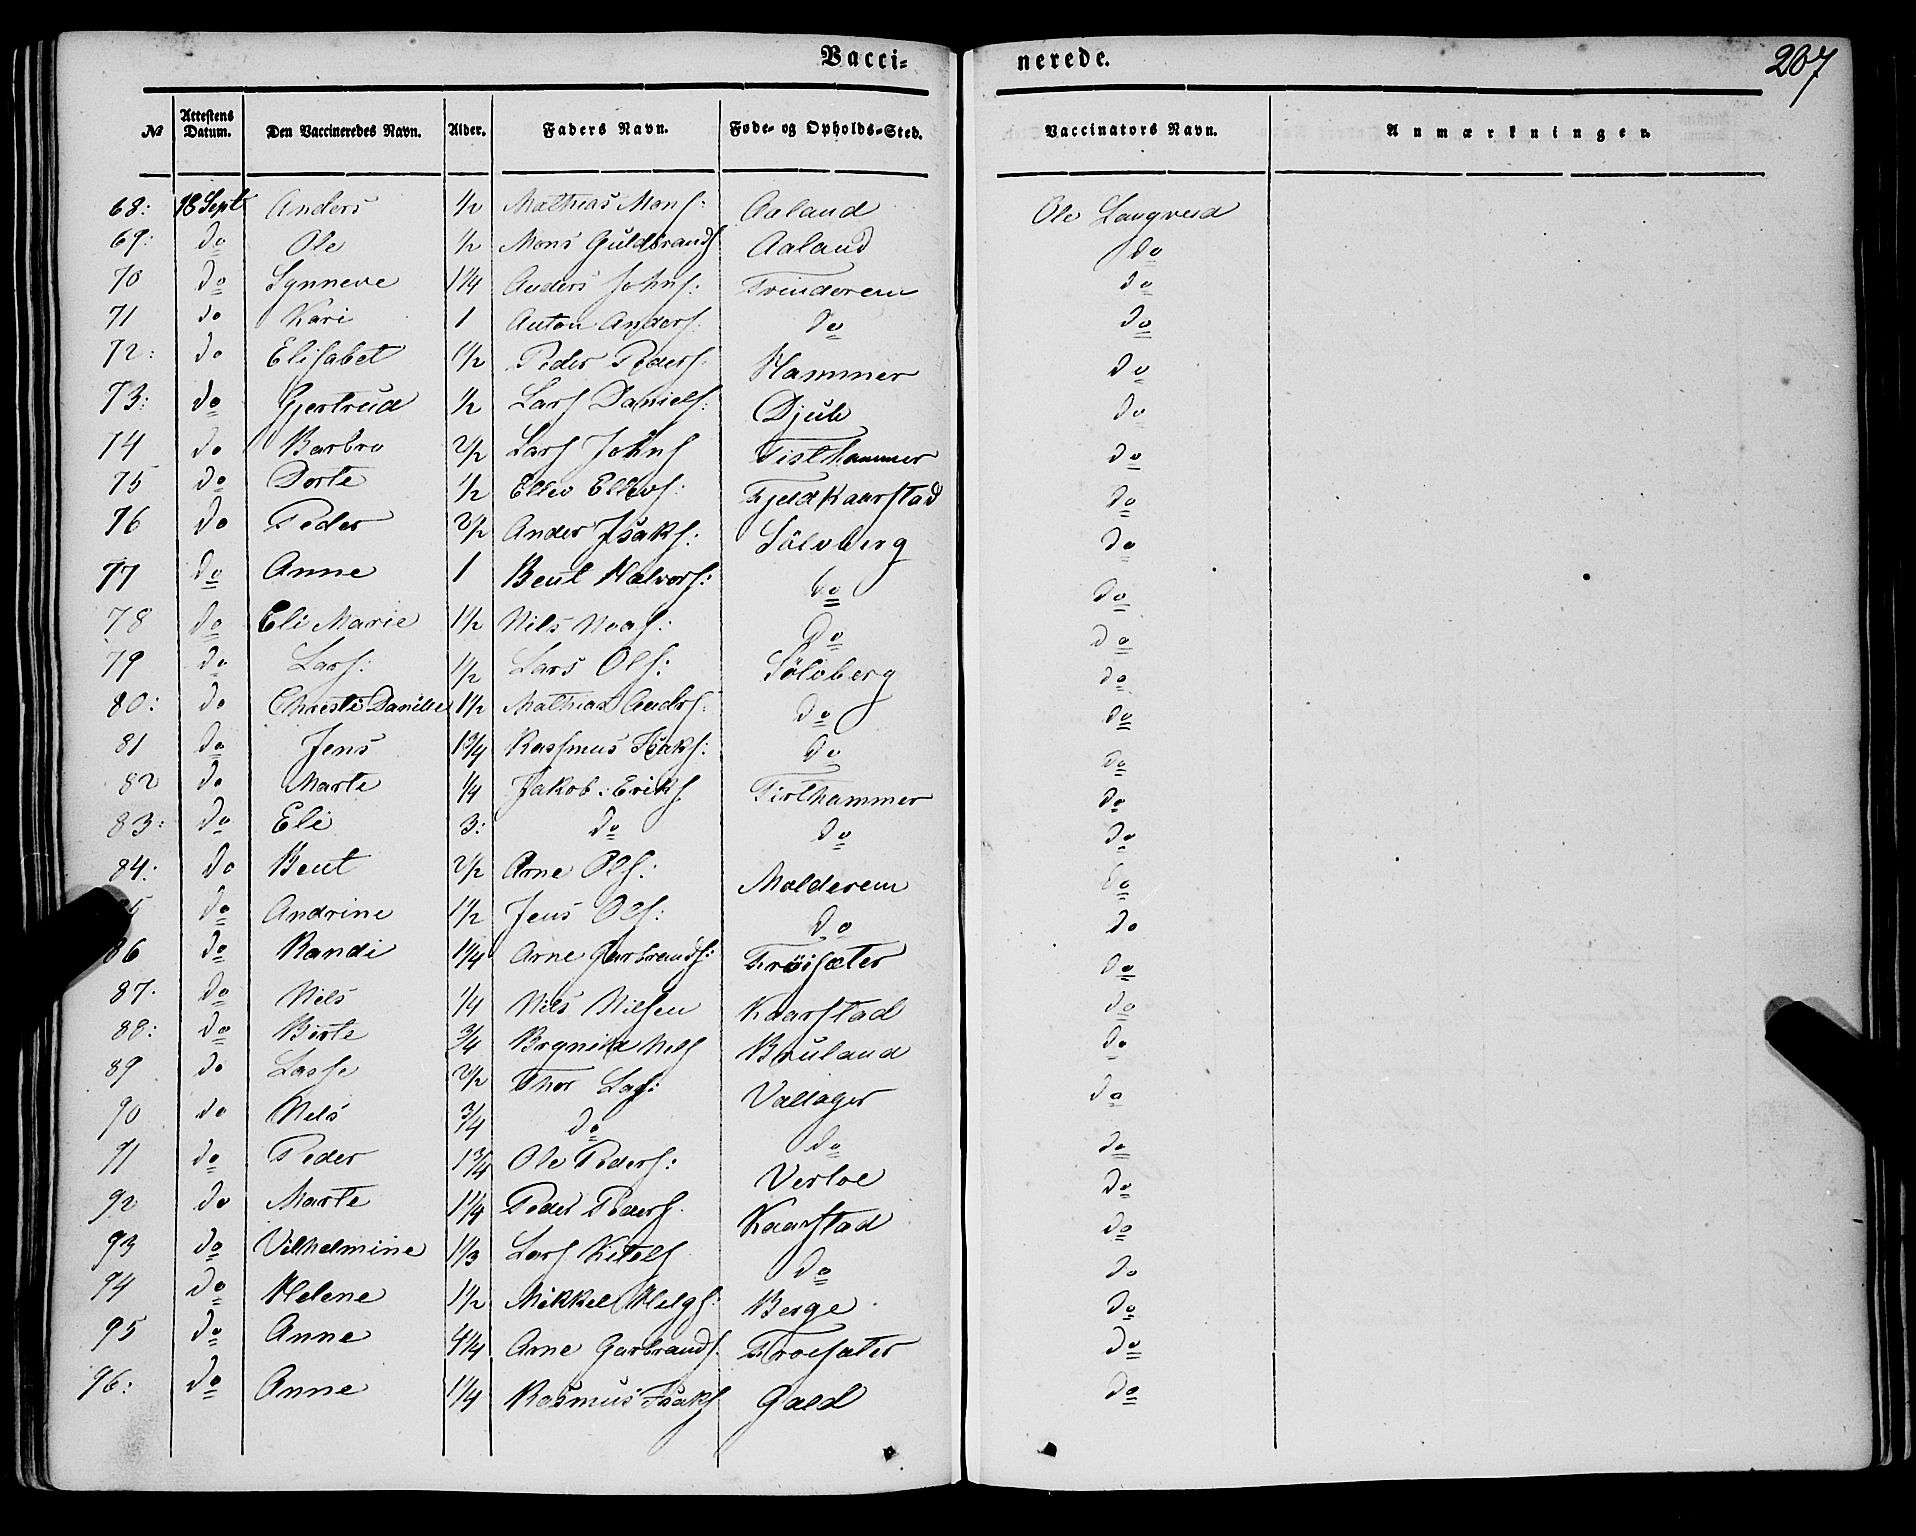 Vacci- nerede. 207
№ Attestens Datum. Den Vaccineredes Navn. Alder. Faders Navn. Føde- og Opholds-Sted. Vaccinators Navn. Anmærkninger.
68: 18 Sept Anders 1/2 Mathias Mons: Aaland Ole Langveid
69: do Ole 1/2 Mons Guldbrands Aaland do
70 do Synneve 1 1/4 Anders Johns: Trinderem do
71 do Kari 1 Anton Anders: do do
72: do Elisabet 1 1/2 Peder Peders: Hammer do
73: do Gjertrud 1/2 Lars Daniels: Djub do
74 do Barbro 2/2 Lars Johns Tisthammer do
75 do Dorte 1/2 Ellev Ellevs: Fjeldkaarstad do
76 do Peder 2/2 Ander Isaks: Sölvberg do
77 do Anne 1 Bent Halvors: do do
78 do Eli Marie 1 1/2 Nils Moas: do do
79 do Lars: 1/2 Lars Ols: Sölvberg do
80: do Christi Danilie 1 1/2 Mathias Andrs: do do
81 do Jens 1 3/4 Rasmus Isaks: do do
82 do Marte 1/4 Jakob: Eriks Tisthammer do
83: do Eli 3: do do do
84: do Bent 2/2 Arne Ols: Molderem do
85 do Andrine 1 1/2 Jens Ols: do do
86 do Randi 1 1/4 Arne Garbrands: Fröisæter do
87. do Nils 1/4 Nils Nilsen Kaarstad do
88: do Birte 3/4 Brynild Nils Bruland do
89 do Lasse 2/2 Thor Las: Vallager do
90 do Nils 3/4 do do do
91 do Peder 1 3/4 Ole Peders: Verloe do
92 do Marte 1 1/4 Peder Peders. Kaarstad do
93 do Vilhelmine 1 1/3 Lars Kitels do do
94 do Helene 1 1/2 Mikkel Helgs: Berge do
95 do Anne 4 1/4 Arne Garbrands: Froesæter do
96: do Anne 1 1/4 Rasmus Isaks Gald do